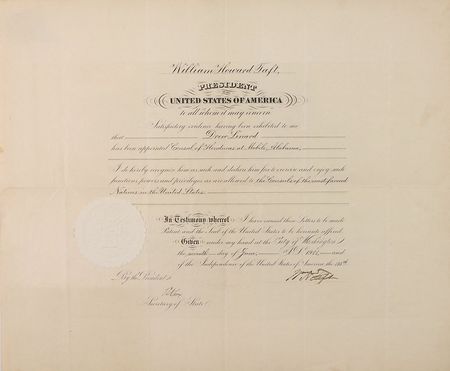 William Howard Taft,
PRESIDENT
OF THE
UNITED STATES OF AMERICA
to all whom it may concern
Satisfactory evidence having been exhibited to me
that Drew Linard
has been appointed Consul of Honduras at Mobile, Alabama,
I do hereby recognize him as such and declare him free to exercise and enjoy such
functions, powers and privileges as are allowed to the Consuls of the most favored
Nations in the United States.
In Testimony whereof I have caused these Letters to be made
Patent and the Seal of the United States to be hereunto affixed.
Given under my hand at the City of Washington
the day of June, A.D. 1911, and
of the Independence of the United States of America the 135th
By the President:
Wm H Taft
Secretary of State.